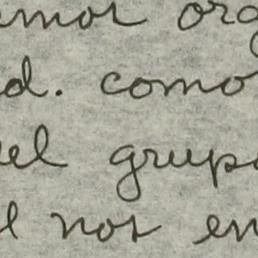 emos org
d. como
el grupo
l nos en